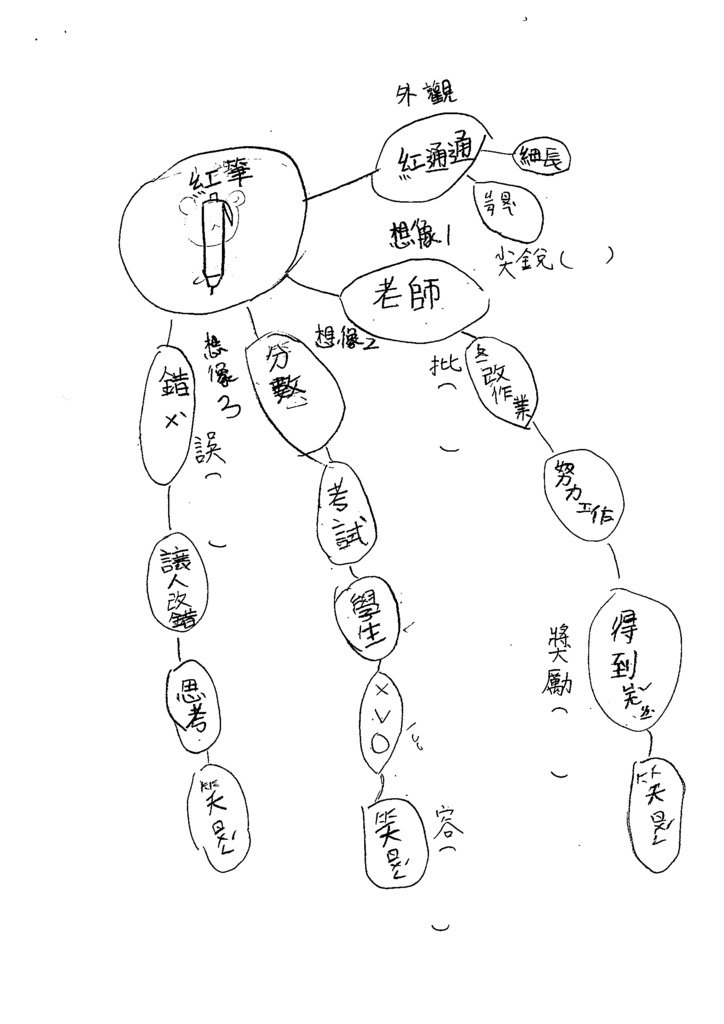 外觀
紅筆
紅通通
細長
尖銳( )
想像1
老師
想像2
批( )
改作業
努力工作
得到
獎勵( )
笑
想像3
分數
考試
學生
×
✓
○
笑
容( )
錯
誤( )
讓人改錯
思考
笑